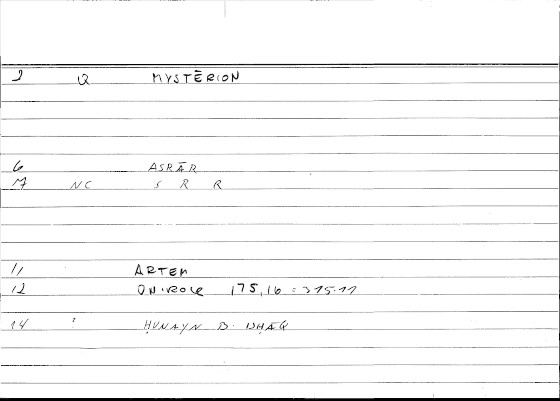 2 Q MYSTĒRION
6 ASRĀR
7 NC S R R
11 ARTEM
12 ONIROCR 175,16 = 315.11
14 ? ḤUNAYN B. ISḤĀQ